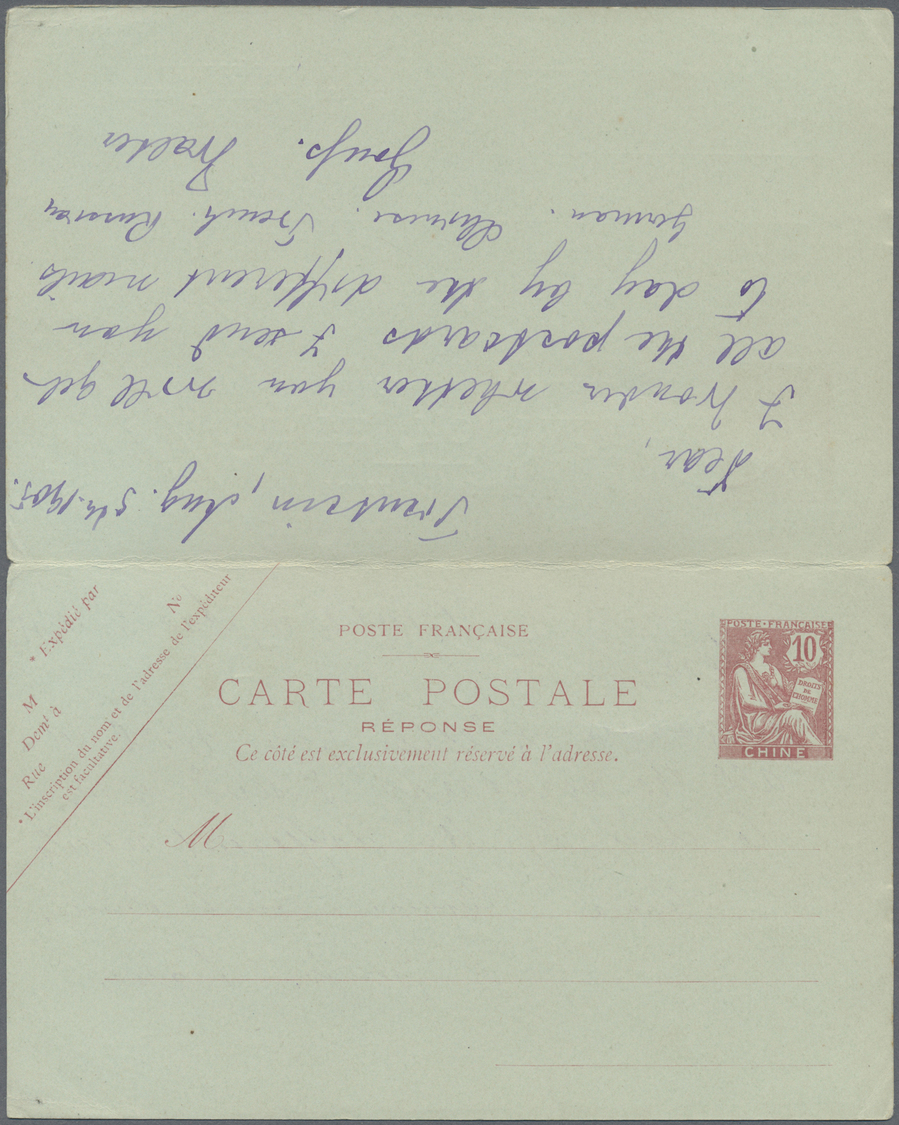 Aug. 5th 1905.
Dear,
I wonder whether you will get
all the postcards I send you
to day by the different mails
German. Chinese. French. Russian
Walter
POSTE FRANÇAISE
CARTE POSTALE
RÉPONSE
Ce côté est exclusivement réservé à l'adresse.
M
* Expédié par
M
Demt à
Rue
No
* L'inscription du nom et de l'adresse de l'expéditeur
est facultative.
POSTE FRANÇAISE
10
DROITS
DE
L'HOMME
CHINE